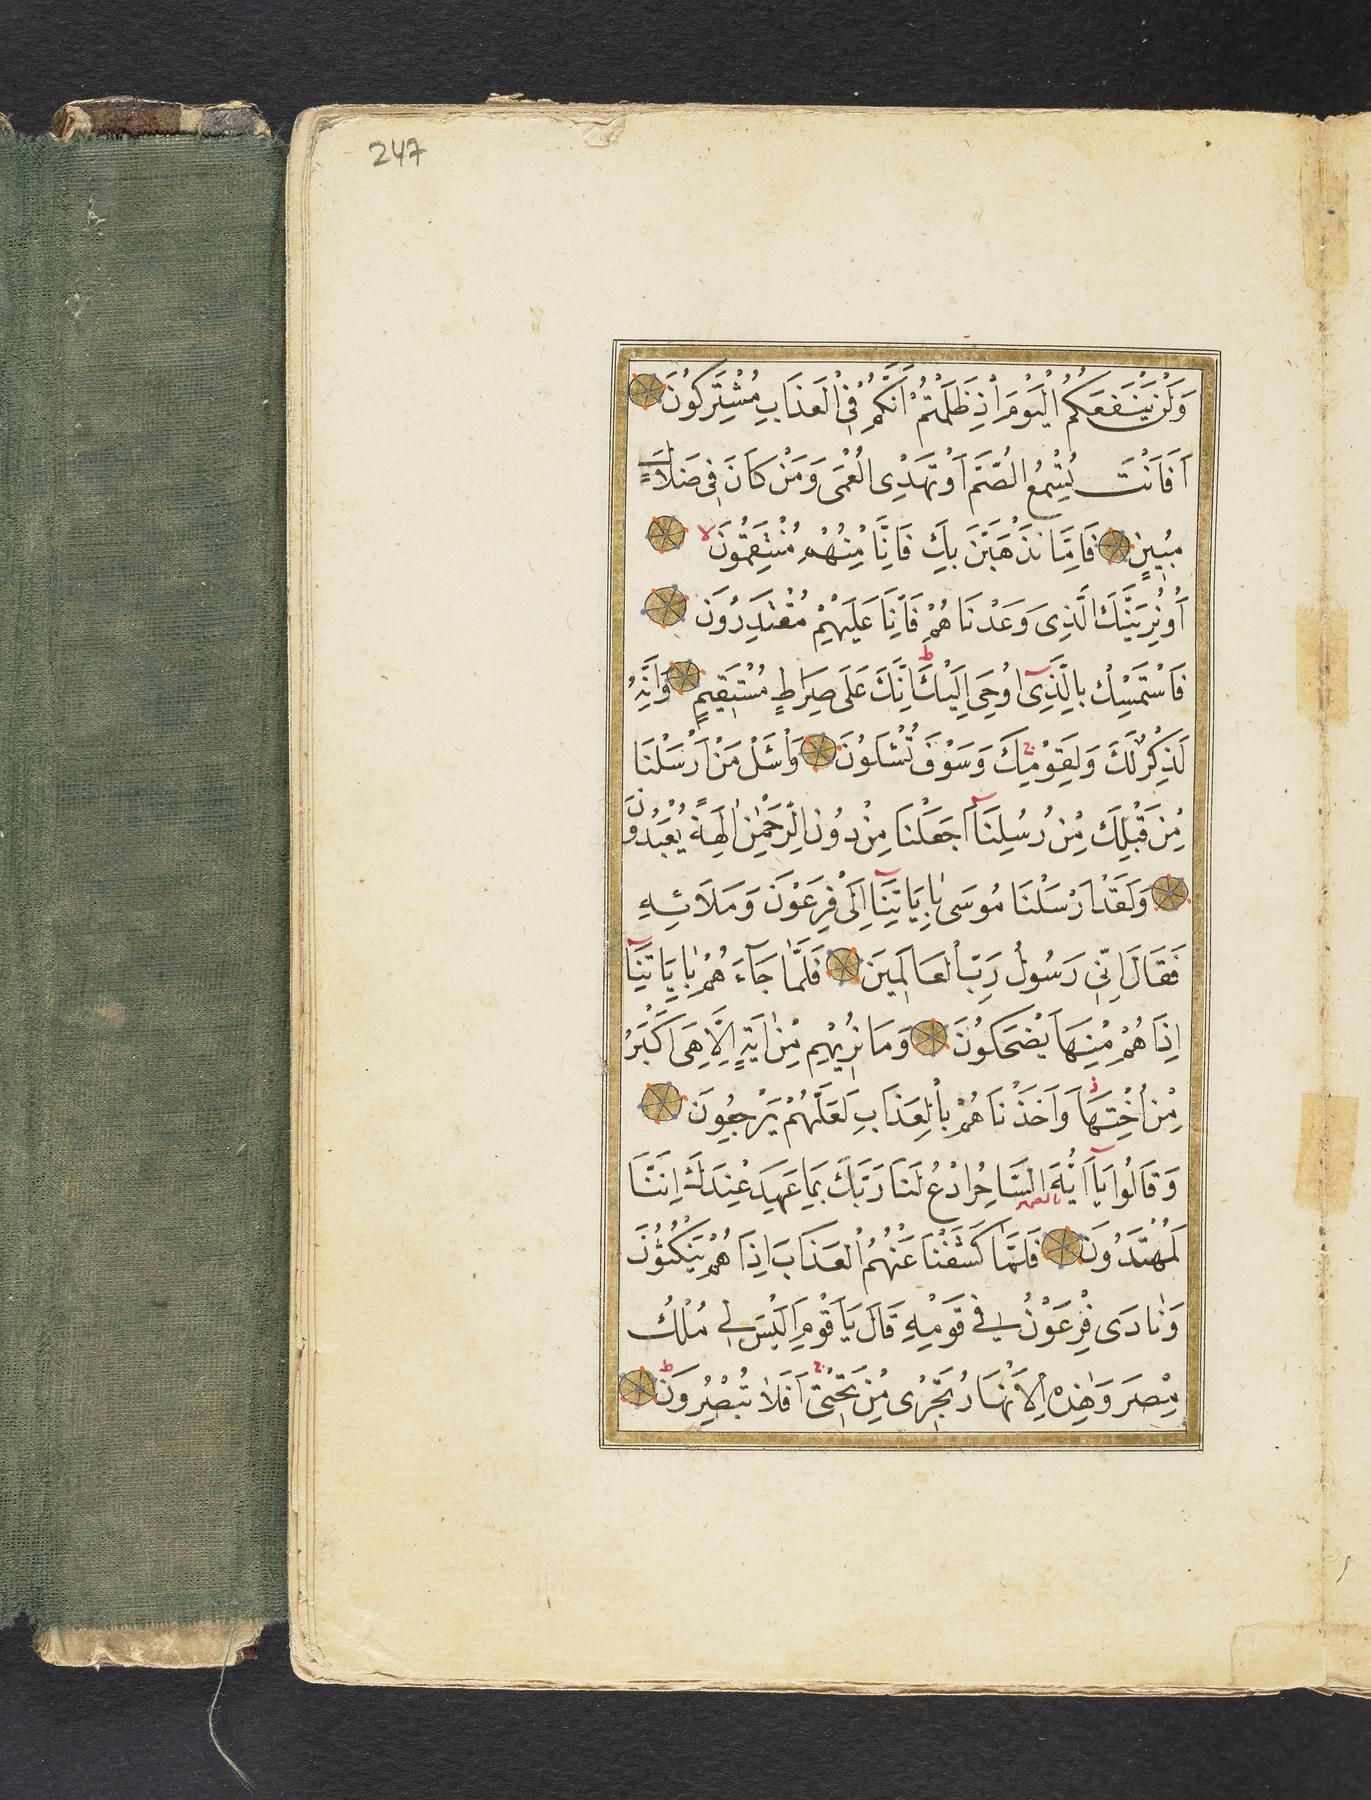 247
وَلَنْ يَنْفَعَكُمُ الْيَوْمَ اِذْ ظَلَمْتُمْ اَنَّكُمْ فِى الْعَذَابِ مُشْتَرِكُونَ
اَفَاَنْتَ تُسْمِعُ الصُّمَّ اَوْ تَهْدِى الْعُمْىَ وَمَنْ كَانَ فِى ضَلَالٍ
مُبِينٍ فَاِمَّا نَذْهَبَنَّ بِكَ فَاِنَّا مِنْهُمْ مُنْتَقِمُونَ لا
اَوْ نُرِيَنَّكَ الَّذِى وَعَدْنَاهُمْ فَاِنَّا عَلَيْهِمْ مُقْتَدِرُونَ
فَاسْتَمْسِكْ بِالَّذِى اُوحِىَ اِلَيْكَ ط اِنَّكَ عَلَى صِرَاطٍ مُسْتَقِيمٍ وَاِنَّهُ
لَذِكْرٌ لَكَ وَلِقَوْمِكَ ج وَسَوْفَ تُسْئَلُونَ وَاسْئَلْ مَنْ اَرْسَلْنَا
مِنْ قَبْلِكَ مِنْ رُسُلِنَا اَجَعَلْنَا مِنْ دُونِ الرَّحْمٰنِ اٰلِهَةً يُعْبَدُونَ
وَلَقَدْ اَرْسَلْنَا مُوسَى بِاٰيَاتِنَا اِلَى فِرْعَوْنَ وَمَلَائِهِ
فَقَالَ اِنِّى رَسُولُ رَبِّ الْعَالَمِينَ فَلَمَّا جَاءَهُمْ بِاٰيَاتِنَا
اِذَا هُمْ مِنْهَا يَضْحَكُونَ وَمَا نُرِيهِمْ مِنْ اٰيَةٍ اِلَّا هِىَ اَكْبَرُ
مِنْ اُخْتِهَا ز وَاَخَذْنَاهُمْ بِالْعَذَابِ لَعَلَّهُمْ يَرْجِعُونَ
وَقَالُوا يَا اَيُّهَ السَّاحِرُ ادْعُ لَنَا رَبَّكَ بِمَا عَهِدَ عِنْدَكَ اِنَّنَا
لَمُهْتَدُونَ فَلَمَّا كَشَفْنَا عَنْهُمُ الْعَذَابَ اِذَا هُمْ يَنْكُثُونَ
وَنَادَى فِرْعَوْنُ فِى قَوْمِهِ قَالَ يَا قَوْمِ اَلَيْسَ لِى مُلْكُ
مِصْرَ وَهٰذِهِ الْاَنْهَارُ تَجْرِى مِنْ تَحْتِى ج اَفَلَا تُبْصِرُونَ ط